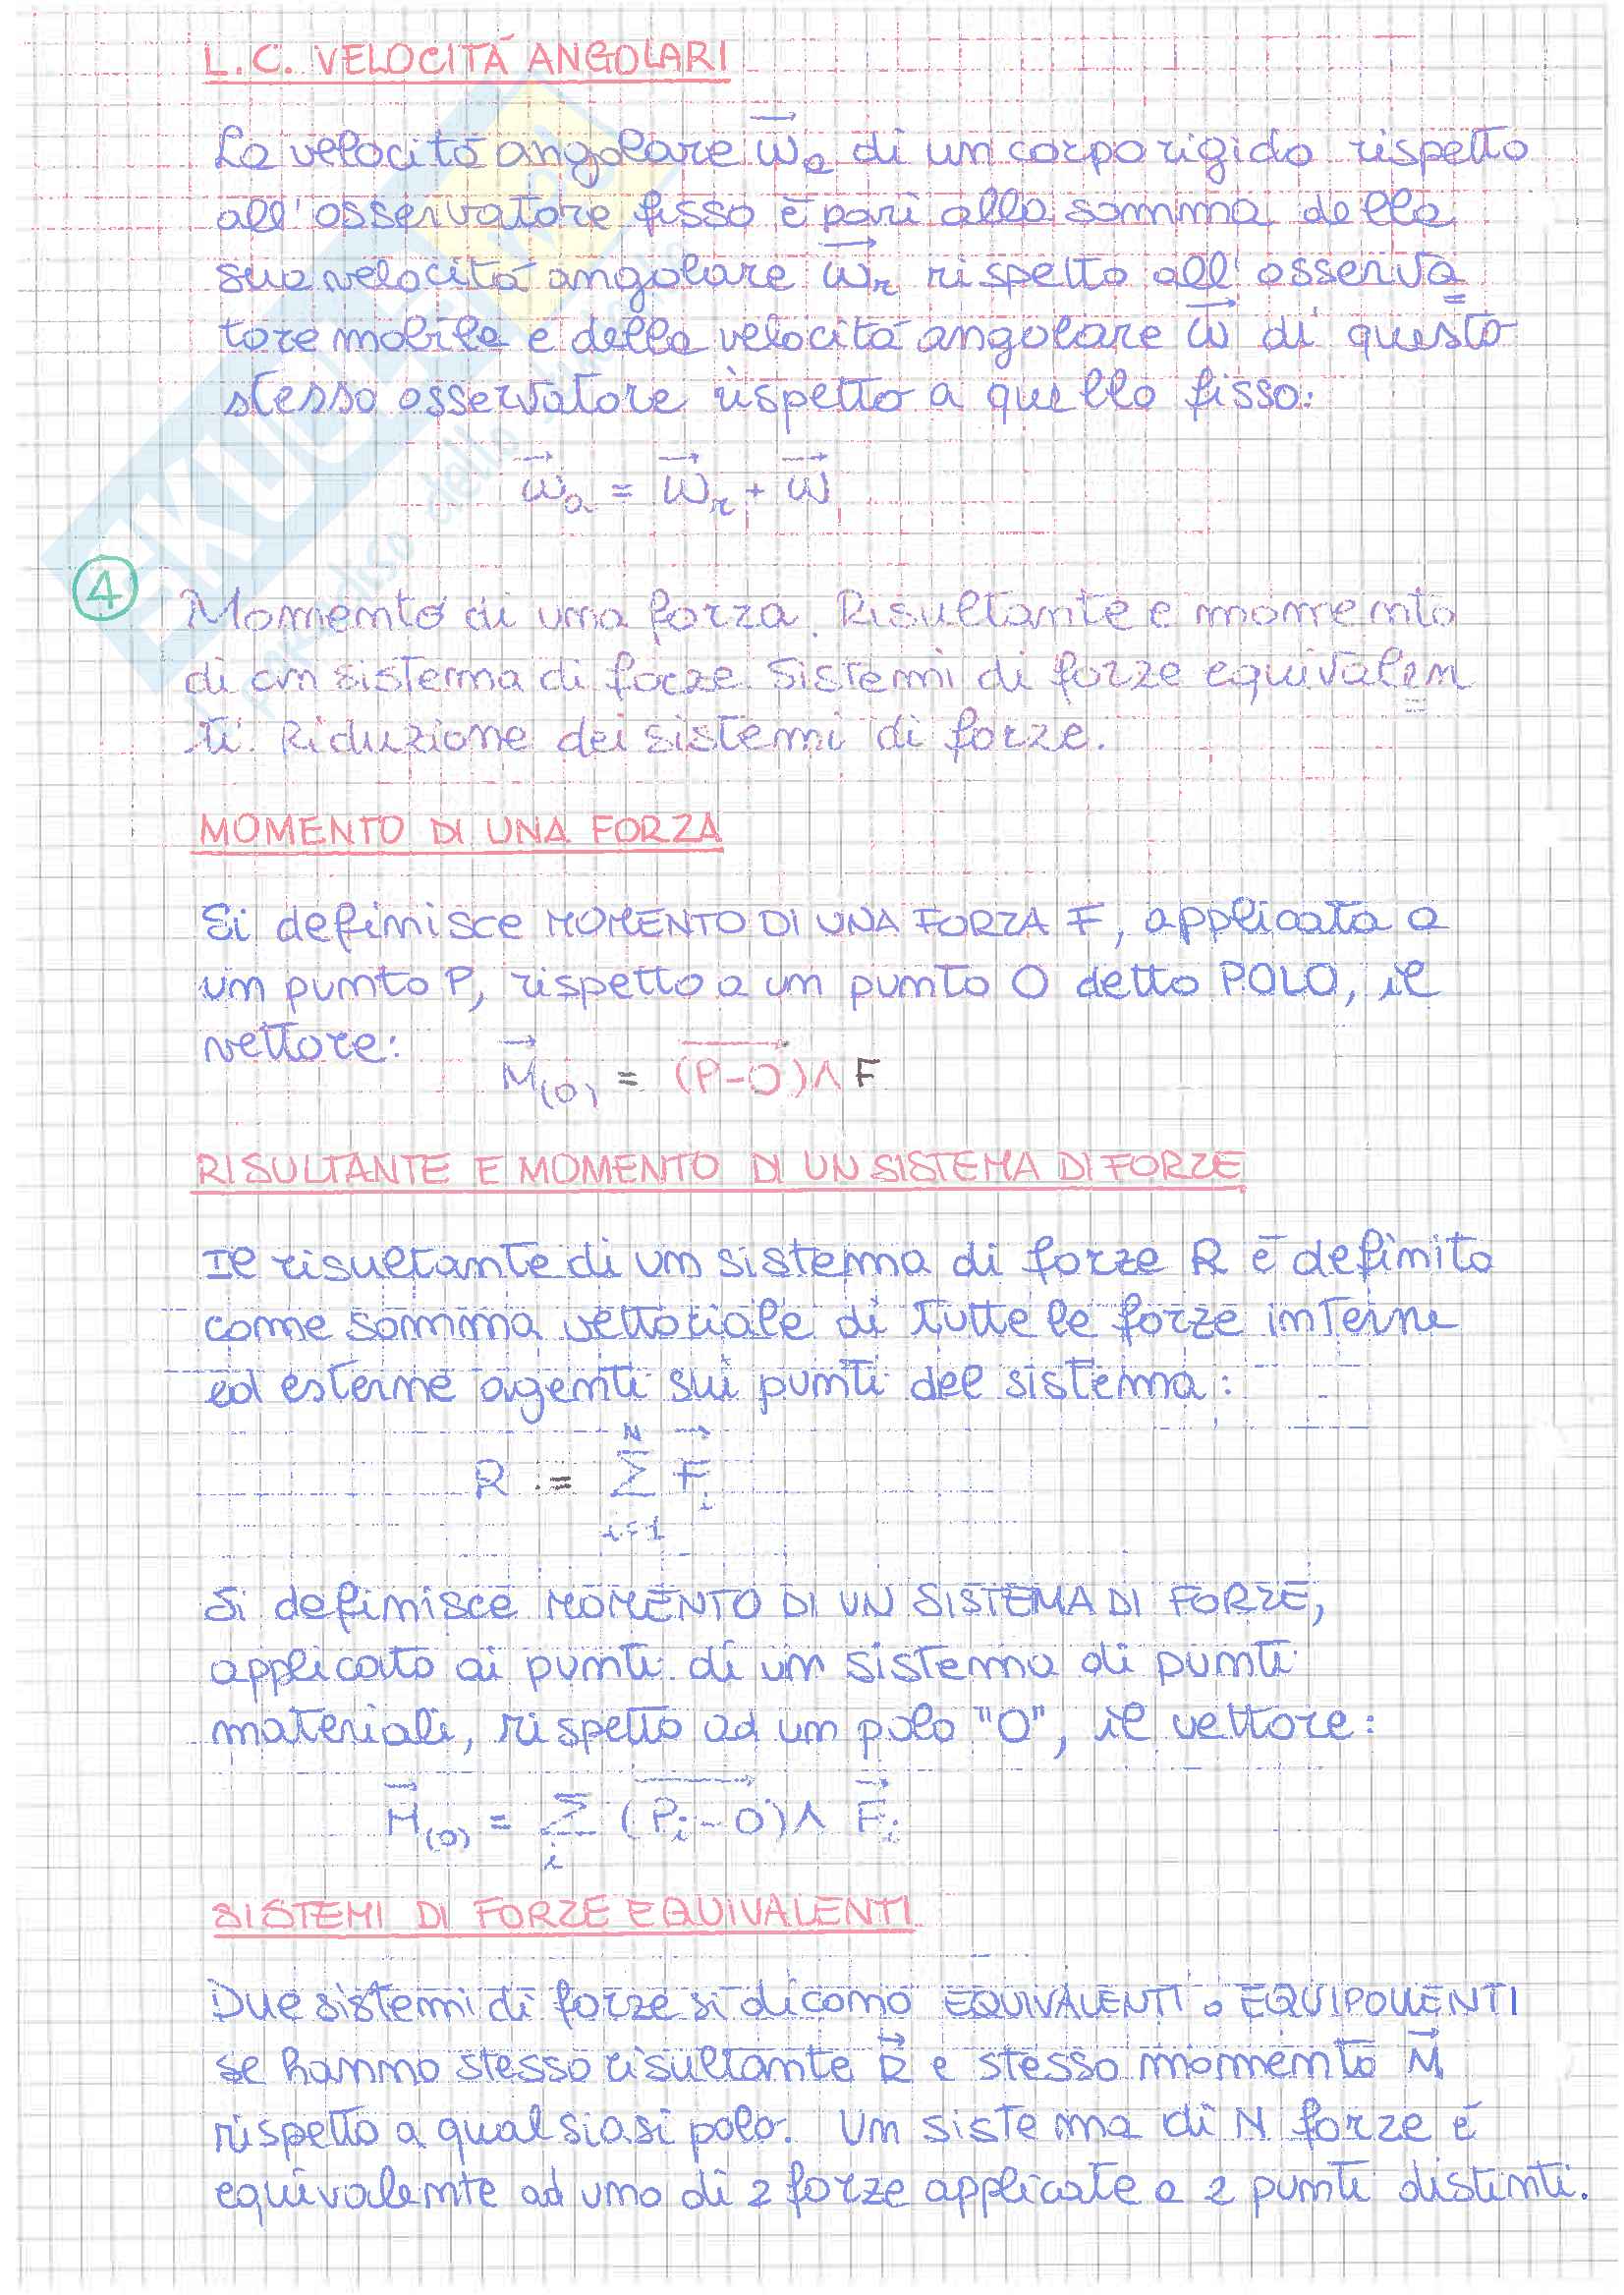 L.C. VELOCITÀ ANGOLARI
La velocità angolare ω⃗a di un corpo rigido rispetto
all'osservatore fisso è pari alla somma della
sua velocità angolare ω⃗r rispetto all'osserva=
tore mobile e della velocità angolare ω⃗ di questo
stesso osservatore rispetto a quello fisso:
ω⃗a = ω⃗r + ω⃗
4
Momento di una forza. Risultante e momento
di un sistema di forze. Sistemi di forze equivalen=
ti. Riduzione dei sistemi di forze.
MOMENTO DI UNA FORZA
Si definisce MOMENTO DI UNA FORZA F, applicata a
un punto P, rispetto a un punto O detto POLO, il
vettore:
M⃗(O) = (P-O)∧ F
RISULTANTE E MOMENTO DI UN SISTEMA DI FORZE
Il risultante di un sistema di forze R è definito
come somma vettoriale di tutte le forze interne
ed esterne agenti sui punti del sistema:
R := N∑i=1 F⃗i
Si definisce MOMENTO DI UN SISTEMA DI FORZE,
applicato ai punti di un sistema di punti
materiali, rispetto ad un polo "O", il vettore:
M⃗(O) = ∑i (Pi-O)∧ F⃗i
SISTEMI DI FORZE EQUIVALENTI
Due sistemi di forze si dicono EQUIVALENTI o EQUIPOLLENTI
se hanno stesso risultante R⃗ e stesso momento M⃗
rispetto a qualsiasi polo. Un sistema di N forze è
equivalente ad uno di 2 forze applicate a 2 punti distinti.